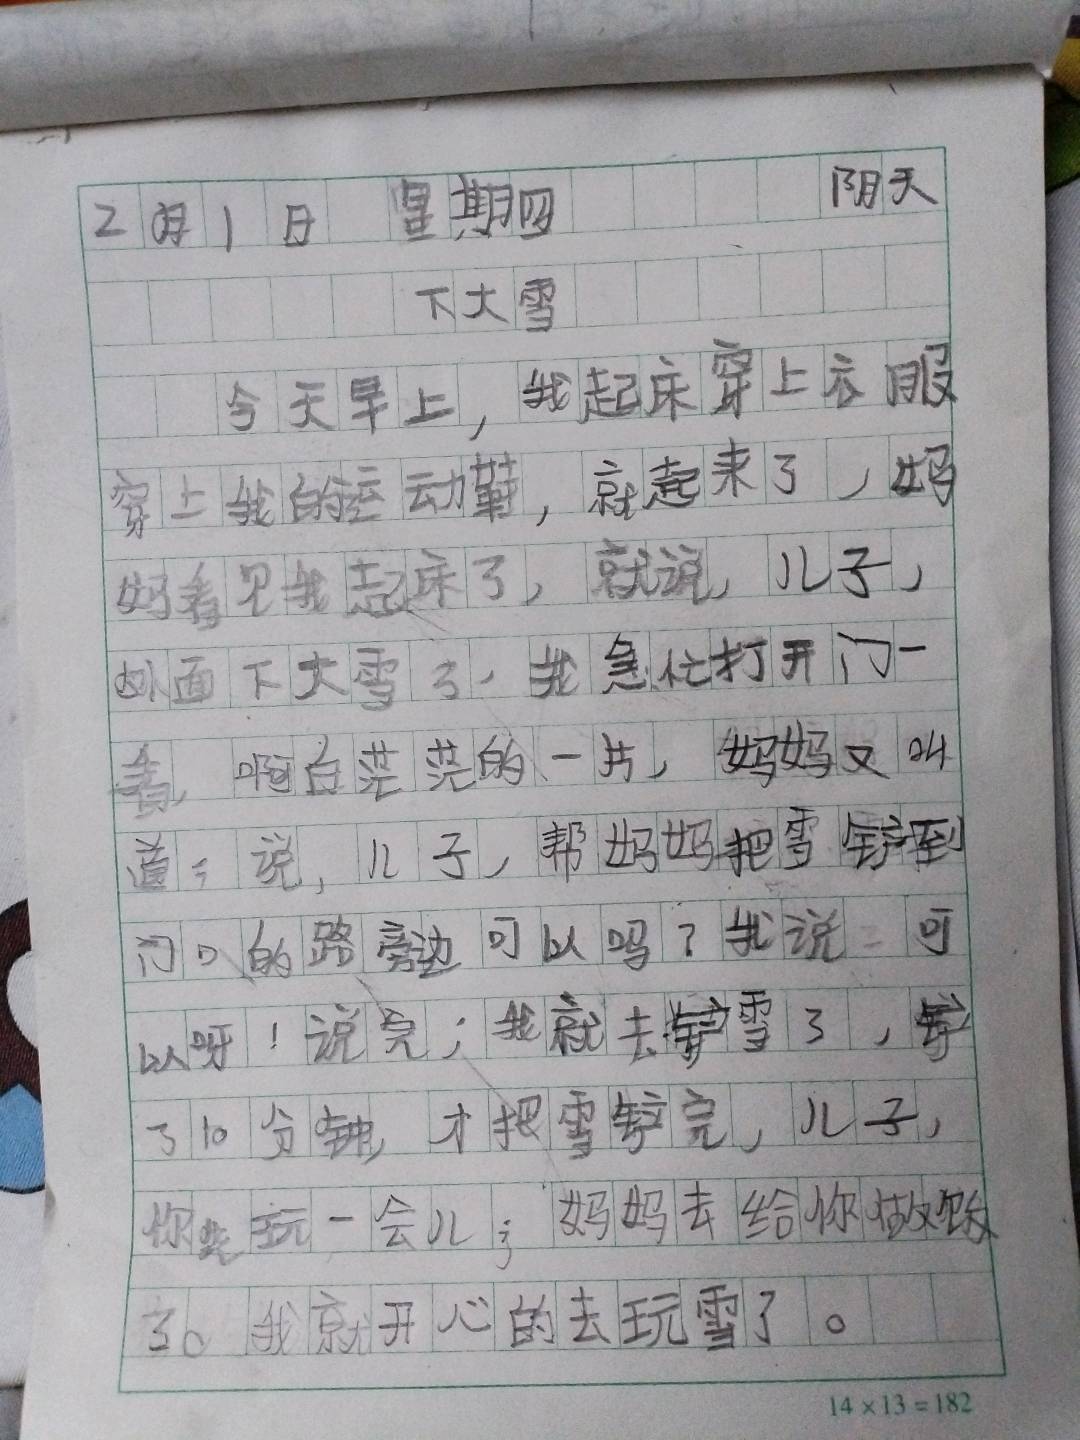 2月1日 星期四 阴天
下大雪
今天早上，我起床穿上衣服
穿上我的运动鞋，就起来了，妈
妈看见我起床了，就说，儿子，
外面下大雪了，我急忙打开门一
看，啊白茫茫的一片，妈妈又叫
道：说，儿子，帮妈妈把雪铲到
门口的路旁边可以吗？我说：可
以呀！说完；我就去铲雪了，铲
了10分钟，才把雪铲完，儿子，
你先玩一会儿；妈妈去给你做饭
了。我就开心的去玩雪了。
14×13=182